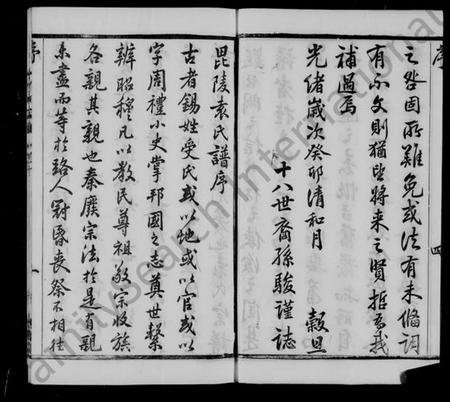 序
之咎固所難免或法有未備詞
有不文則猶望將來之賢哲為我
補過焉
光緒歲次癸卯清和月 穀旦
十八世裔孫駿謹誌
四
毘陵袁氏譜序
古者錫姓受氏或以地或以官或以
字周禮小史掌邦國之志奠世繫
辨昭穆凡以教民尊祖敬宗收族
各親其親也秦廢宗法於是有親
未盡而等於路人冠昏喪祭不相往
序
一
FamilySearch International